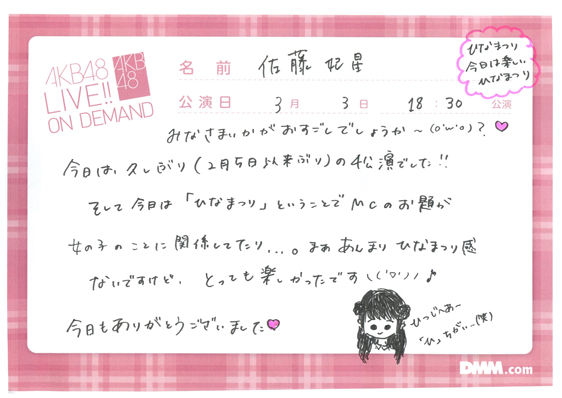 AKB48
LIVE!!
ON DEMAND
AKB
48
名前 佐藤 妃星
公演日 3月 3日 18:30 公演
ひなまつり
今日は楽しい
ひなまつり
みなさまいかがおすごしでしょうか〜(o'ω'o)?
今日は、久しぶり(2月5日以来ぶり)の公演でした!!
そして今日は「ひなまつり」ということでMCのお題が
女の子のことに関係してたり...。まぁあんまりひなまつり感
ないですけど、とっても楽しかったです\(('▽'))♪
今日もありがとうございました
ひつじへあー
「ひ」ちがい...(笑)
DMM.com